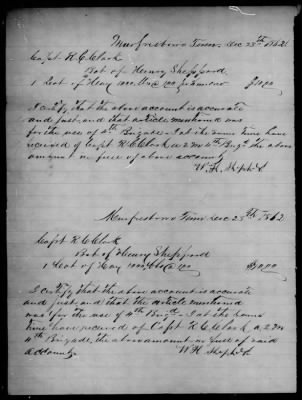 Murfresboro Tenn. Dec 25th 1862
Capt H. C. Clark
Bot of Henry Sheppard
1 Lot of Hay 1000 lbs @ 100 $10.00
I certify that the above account is accurate
and just, and that article mentioned
was for the use of 4th Brigade. I at the same time have
received of Capt H C Clark a 2 M 4th Brig. the above
amount in full of above account
W. H. Shephrd
Murfresboro Tenn Dec 25th 1862
Capt H C Clark
Bot of Henry Sheppard
1 Lot of Hay 1000 lbs @ 100 $10.00
I certify that the above account is accurate
and just, and that the article mentioned
was for the use of 4th Brigd. I at the same
time have received of Capt H. C. Clark, a 2 M
4th Brigade, the above amount in full of said
account.
W H Shephrd